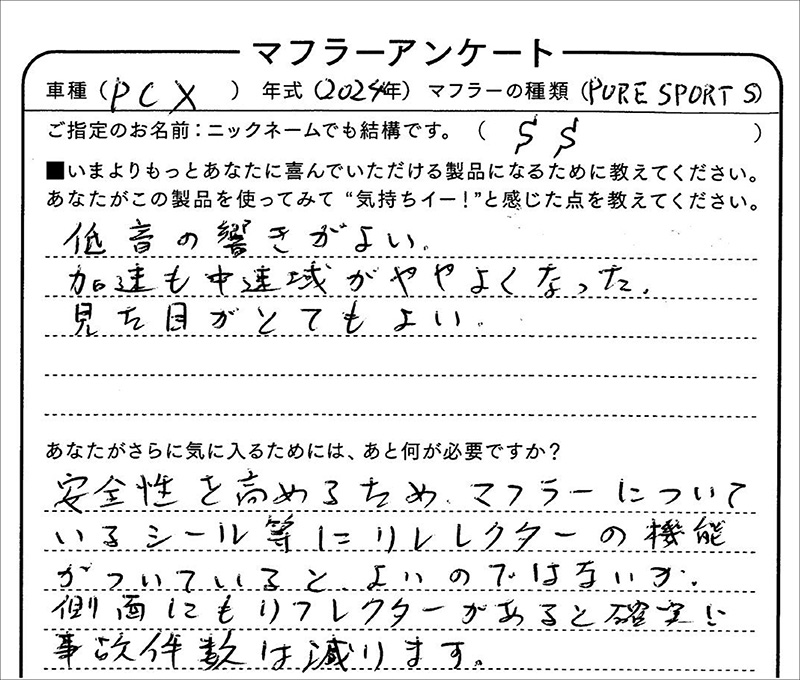 マフラーアンケート
車種（PCX）年式（2024年）マフラーの種類（PURE SPORT S）
ご指定のお名前：ニックネームでも結構です。（SS）
■いまよりもっとあなたに喜んでいただける製品になるために教えてください。
あなたがこの製品を使ってみて“気持ちイー！”と感じた点を教えてください。
低音の響きがよい。
加速も中速域がややよくなった。
見た目がとてもよい。
あなたがさらに気に入るためには、あと何が必要ですか？
安全性を高めるため、マフラーについて
いるシール等にリレレクターの機能
がついていると、よいのではないか。
側面にもリフレクターがあると確実に
事故件数は減ります。